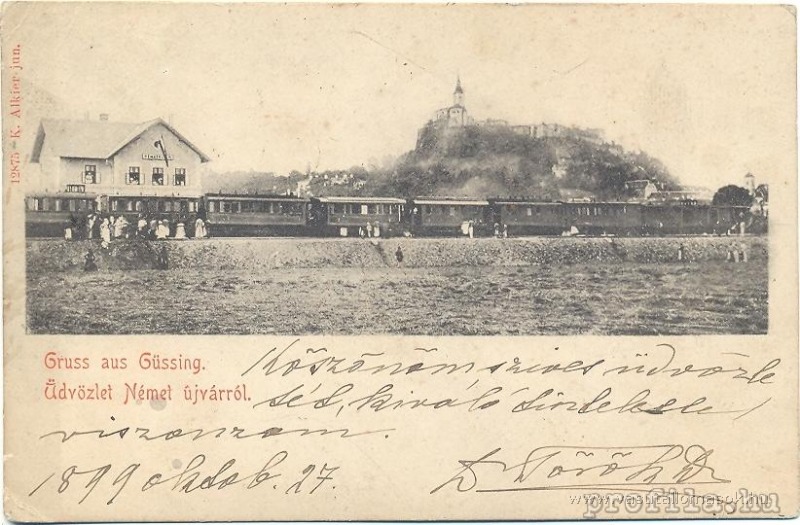 12875 - K. Alkier jun.
Gruss aus Güssing.
Üdvözlet Német újvárról.
Köszönöm szives üdvözle
tét, kiváló tisztelettel
viszonzom.
1899 oktob. 27.
Dr Török
www.vasutallomasok.hu
profila.hu